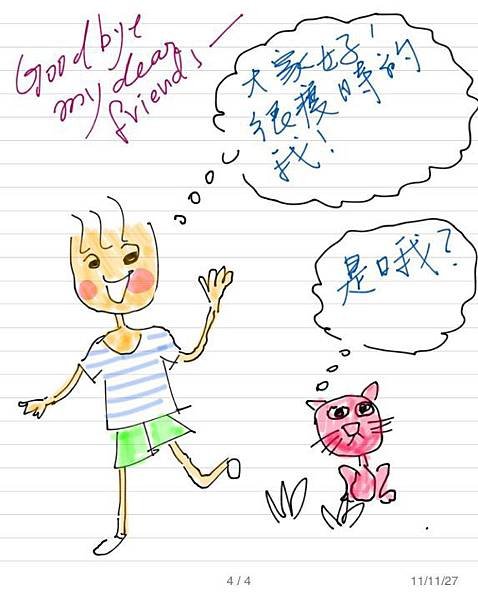 Goodbye
my dear
friends
大家好！
很瘦時的
我！
是哦？
4 / 4
11/11/27